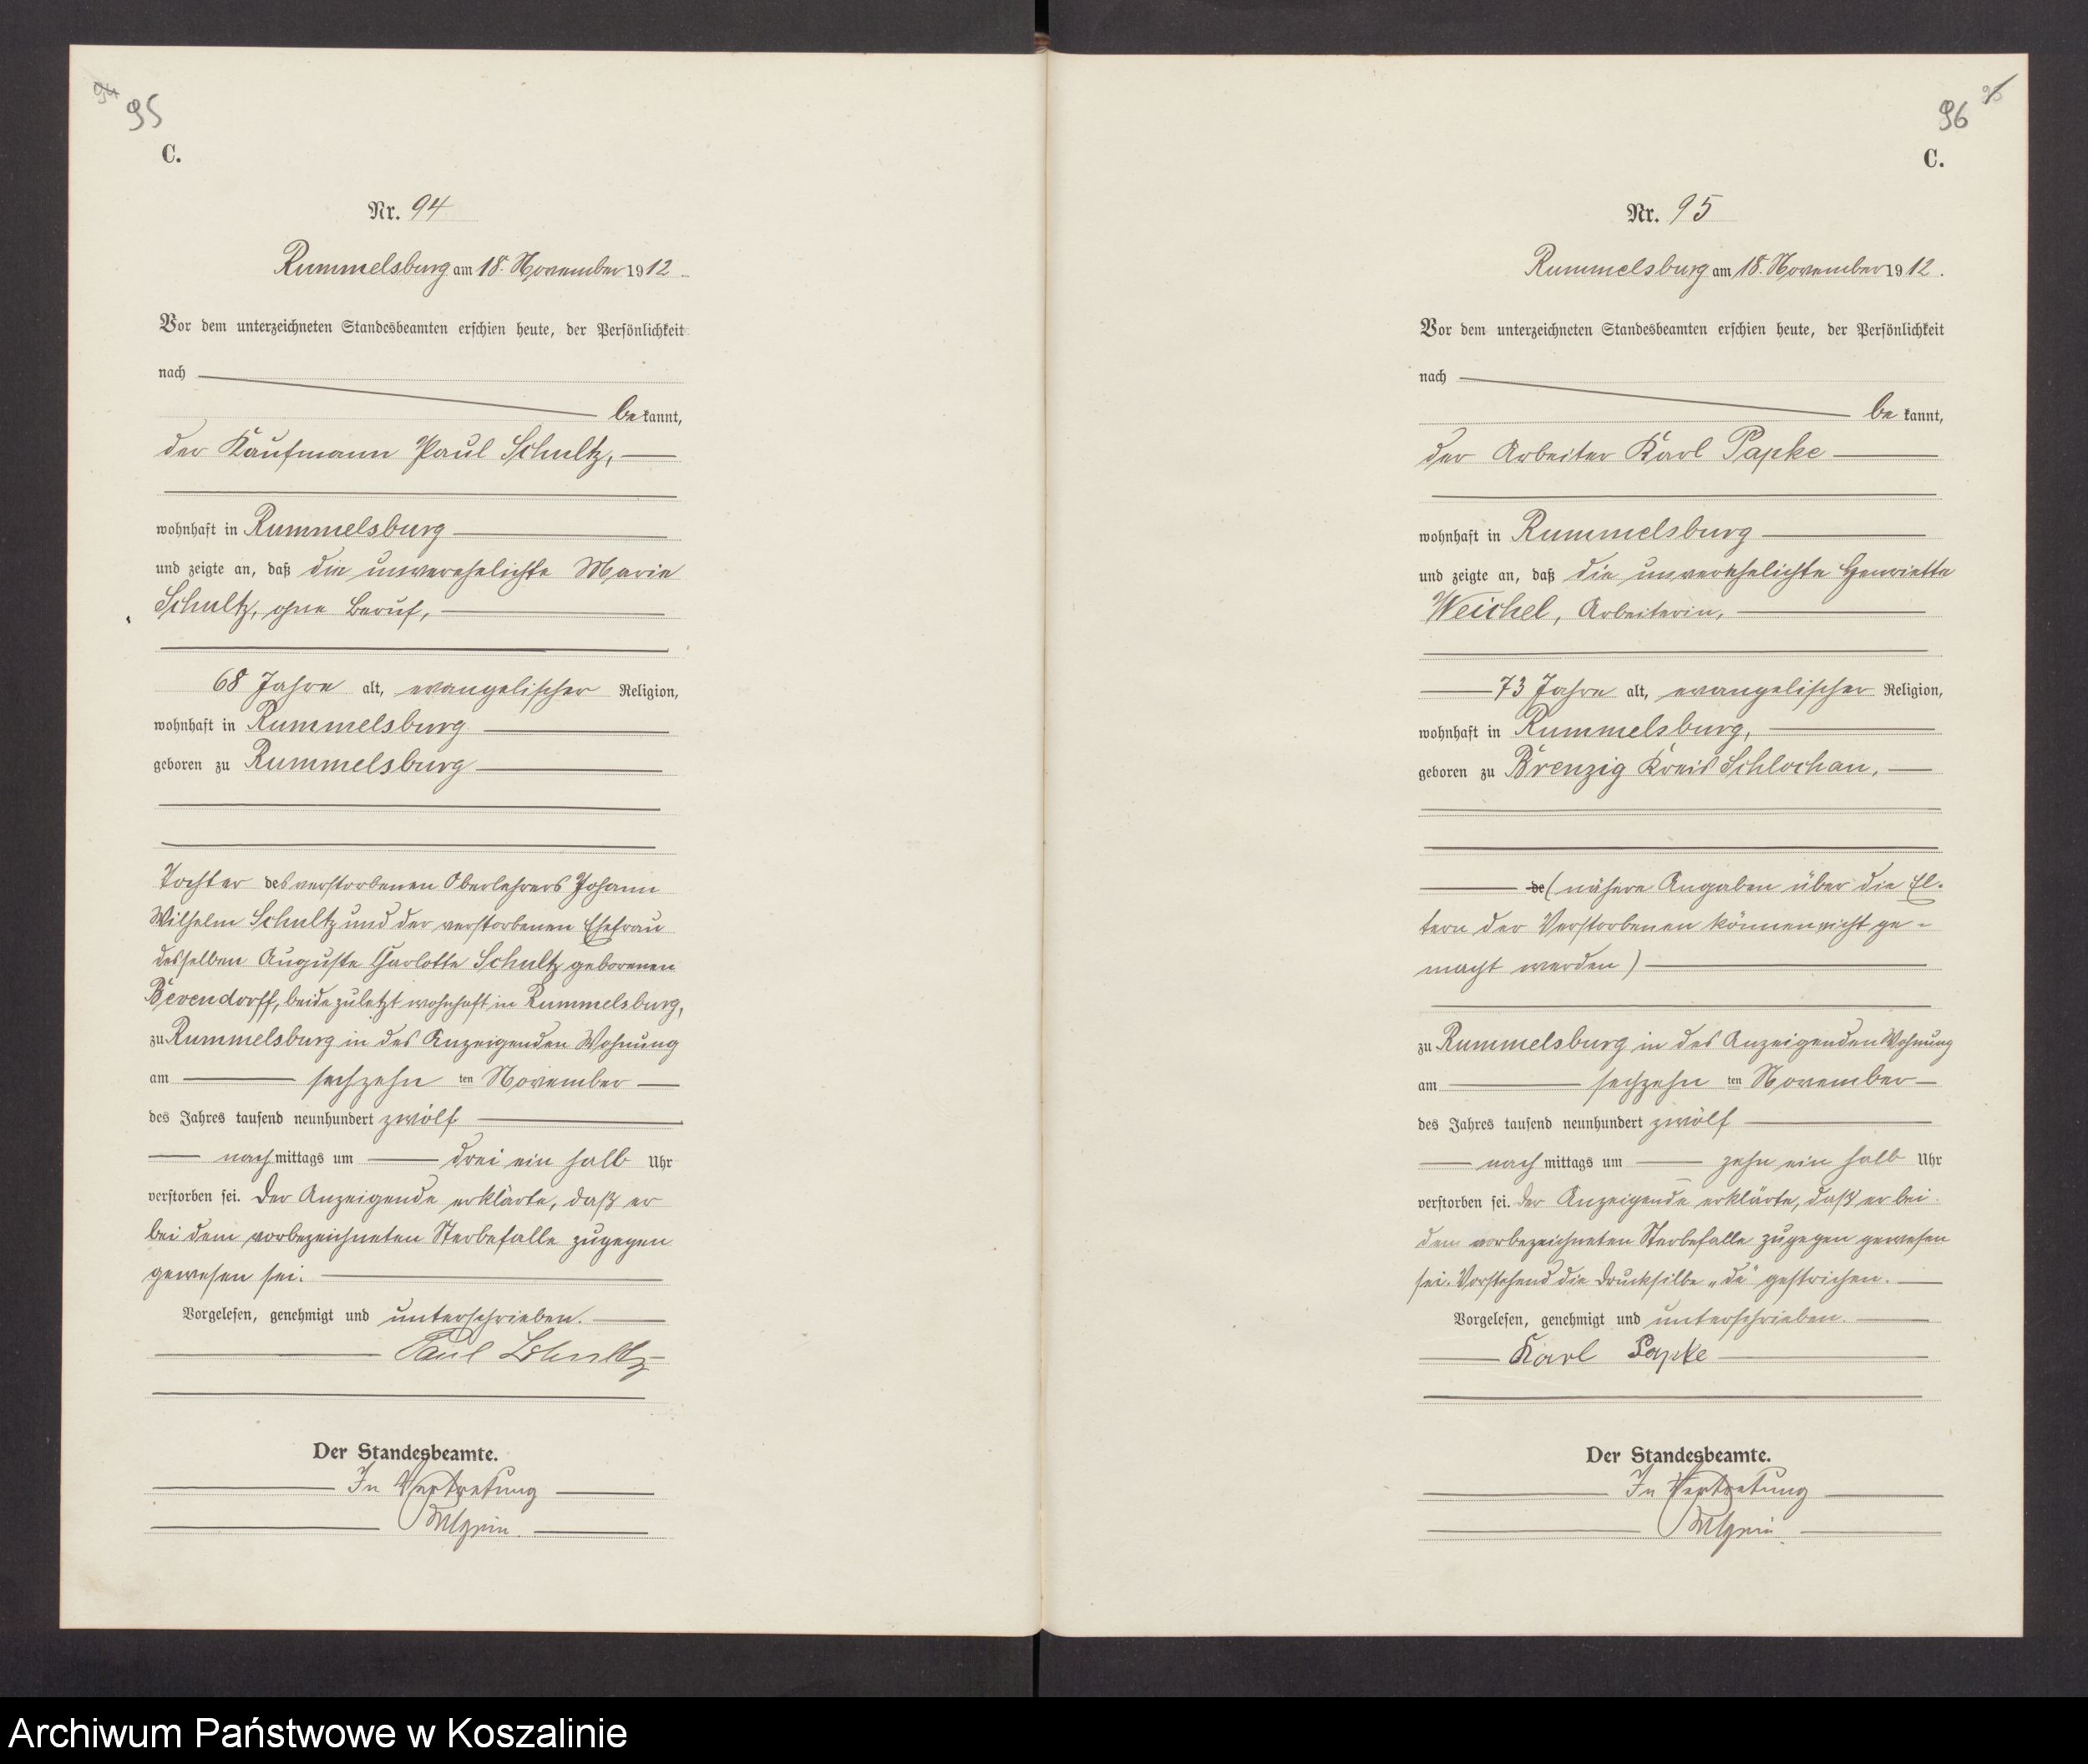 94
95
C.
Nr. 94
Rummelsburg am 18. November 1912
Vor dem unterzeichneten Standesbeamten erschien heute, der Persönlichkeit
nach
bekannt,
der Kaufmann Paul Schultz,
wohnhaft in Rummelsburg
und zeigte an, daß die unverehelichte Marie
Schultz, ohne Beruf,
68 Jahre alt, evangelischer Religion,
wohnhaft in Rummelsburg
geboren zu Rummelsburg
Tochter des verstorbenen Oberlehrers Johann
Wilhelm Schultz und der verstorbenen Ehefrau
desselben Auguste Charlotte Schultz geborenen
Bevendorff, beide zuletzt wohnhaft in Rummelsburg,
zu Rummelsburg in des Anzeigenden Wohnung
am sechzehn ten November
des Jahres tausend neunhundert zwölf
nachmittags um drei ein halb Uhr
verstorben sei. Der Anzeigende erklärte, daß er
bei dem vorbezeichneten Sterbefalle zugegen
gewesen sei.
Vorgelesen, genehmigt und unterschrieben.
Paul Schultz
Der Standesbeamte.
In Vertretung
95
96
C.
Nr. 95
Rummelsburg am 18. November 1912.
Vor dem unterzeichneten Standesbeamten erschien heute, der Persönlichkeit
nach
bekannt,
der Arbeiter Karl Papke
wohnhaft in Rummelsburg
und zeigte an, daß die unverehelichte Henriette
Weichel, Arbeiterin,
73 Jahre alt, evangelischer Religion,
wohnhaft in Rummelsburg,
geboren zu Brenzig Kreis Schlochau,
de (nähere Angaben über die El-
tern der Verstorbenen können nicht ge-
macht werden)
zu Rummelsburg in des Anzeigenden Wohnung
am sechzehn ten November
des Jahres tausend neunhundert zwölf
nachmittags um zehn ein halb Uhr
verstorben sei. Der Anzeigende erklärte, daß er bei
dem vorbezeichneten Sterbefalle zugegen gewesen
sei. Vorstehend die Drucksilbe „de" gestrichen.
Vorgelesen, genehmigt und unterschrieben.
Karl Papke
Der Standesbeamte.
In Vertretung
Archiwum Państwowe w Koszalinie